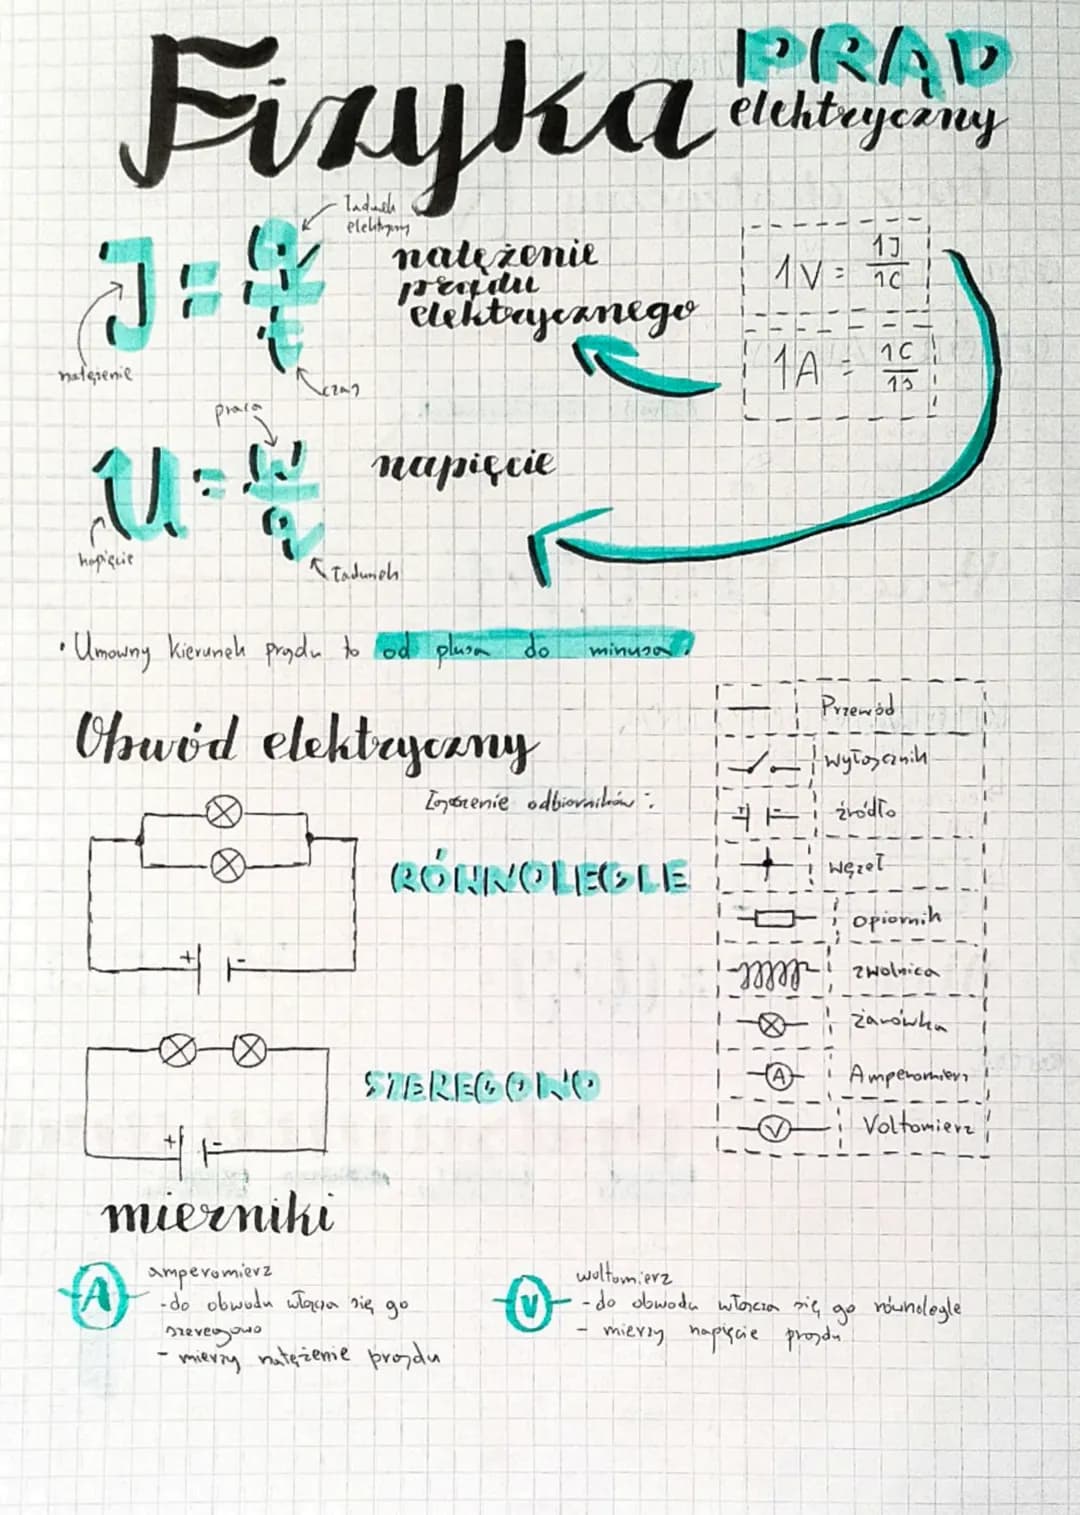 Fizyka
PRĄD
elektryczny
J = q/t
Ładunek
elektryczny
natężenie
czas
natężenie
prądu
elektrycznego
1V = 1J/1C
1A = 1C/1s
U = W/q
praca
napięcie
Ładunek
napięcie
• Umowny kierunek prądu to od plusa do minusa.
Obwód elektryczny
odbiorników:
RÓWNOLEGLE
+ -
SZEREGOWO
+ -
Przewód
wyłącznik
+ - źródło
węzeł
opiornik
zwolnica
żarówka
A Amperomierz
V Voltomierz
mierniki
A
amperomierz
- do obwodu włącza się go
szeregowo
- mierzy natężenie prądu
V
woltomierz
- do obwodu włącza się go równolegle
- mierzy napięcie prądu